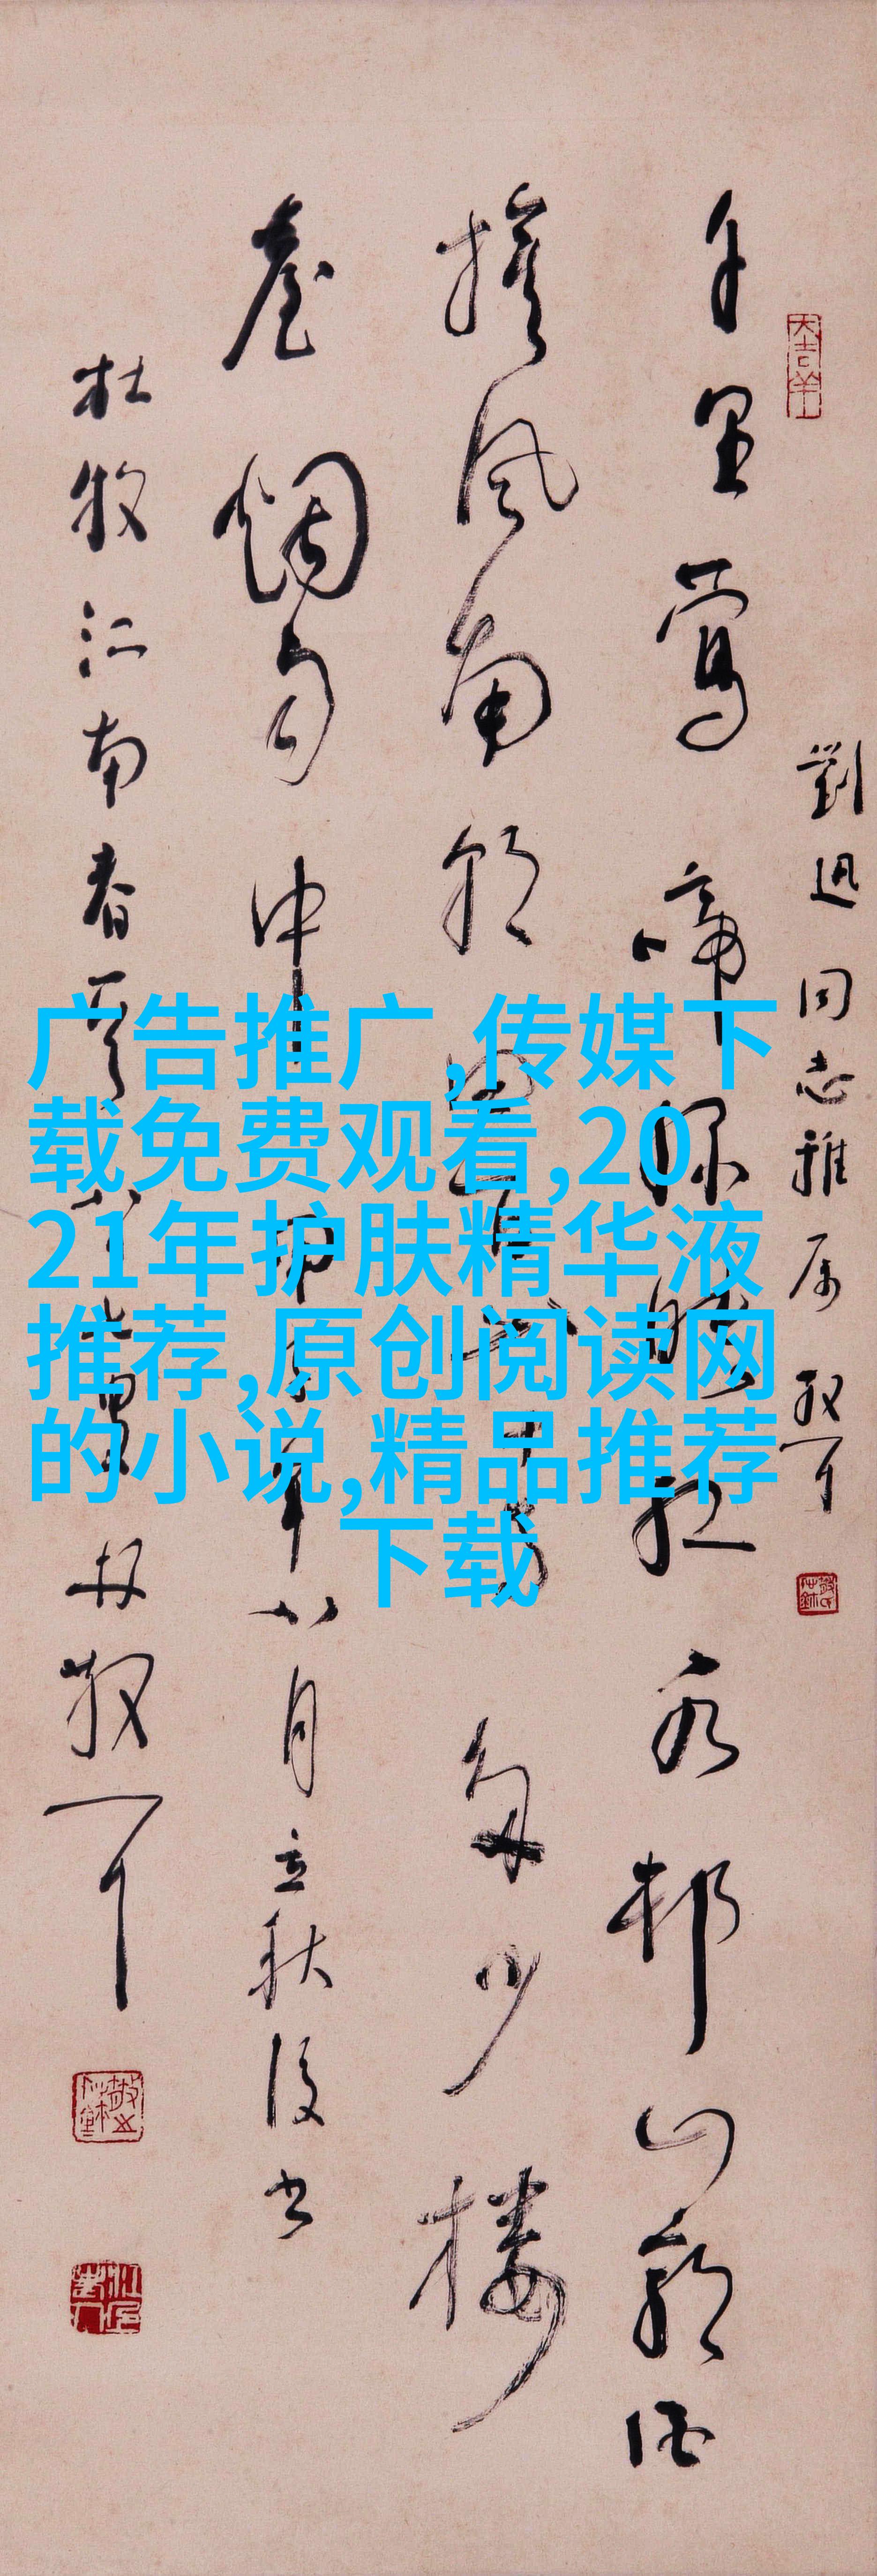 大吉羊
劉迅同志雅属 散耳
千里鶯啼綠映红水邨山郭酒
旗風南朝四百八十寺多少楼
臺烟雨中 年八月立秋後书
杜牧江南春 林散耳
广告推广,传媒下
载免费观看,20
21年护肤精华液
推荐,原创阅读网
的小说,精品推荐
下载